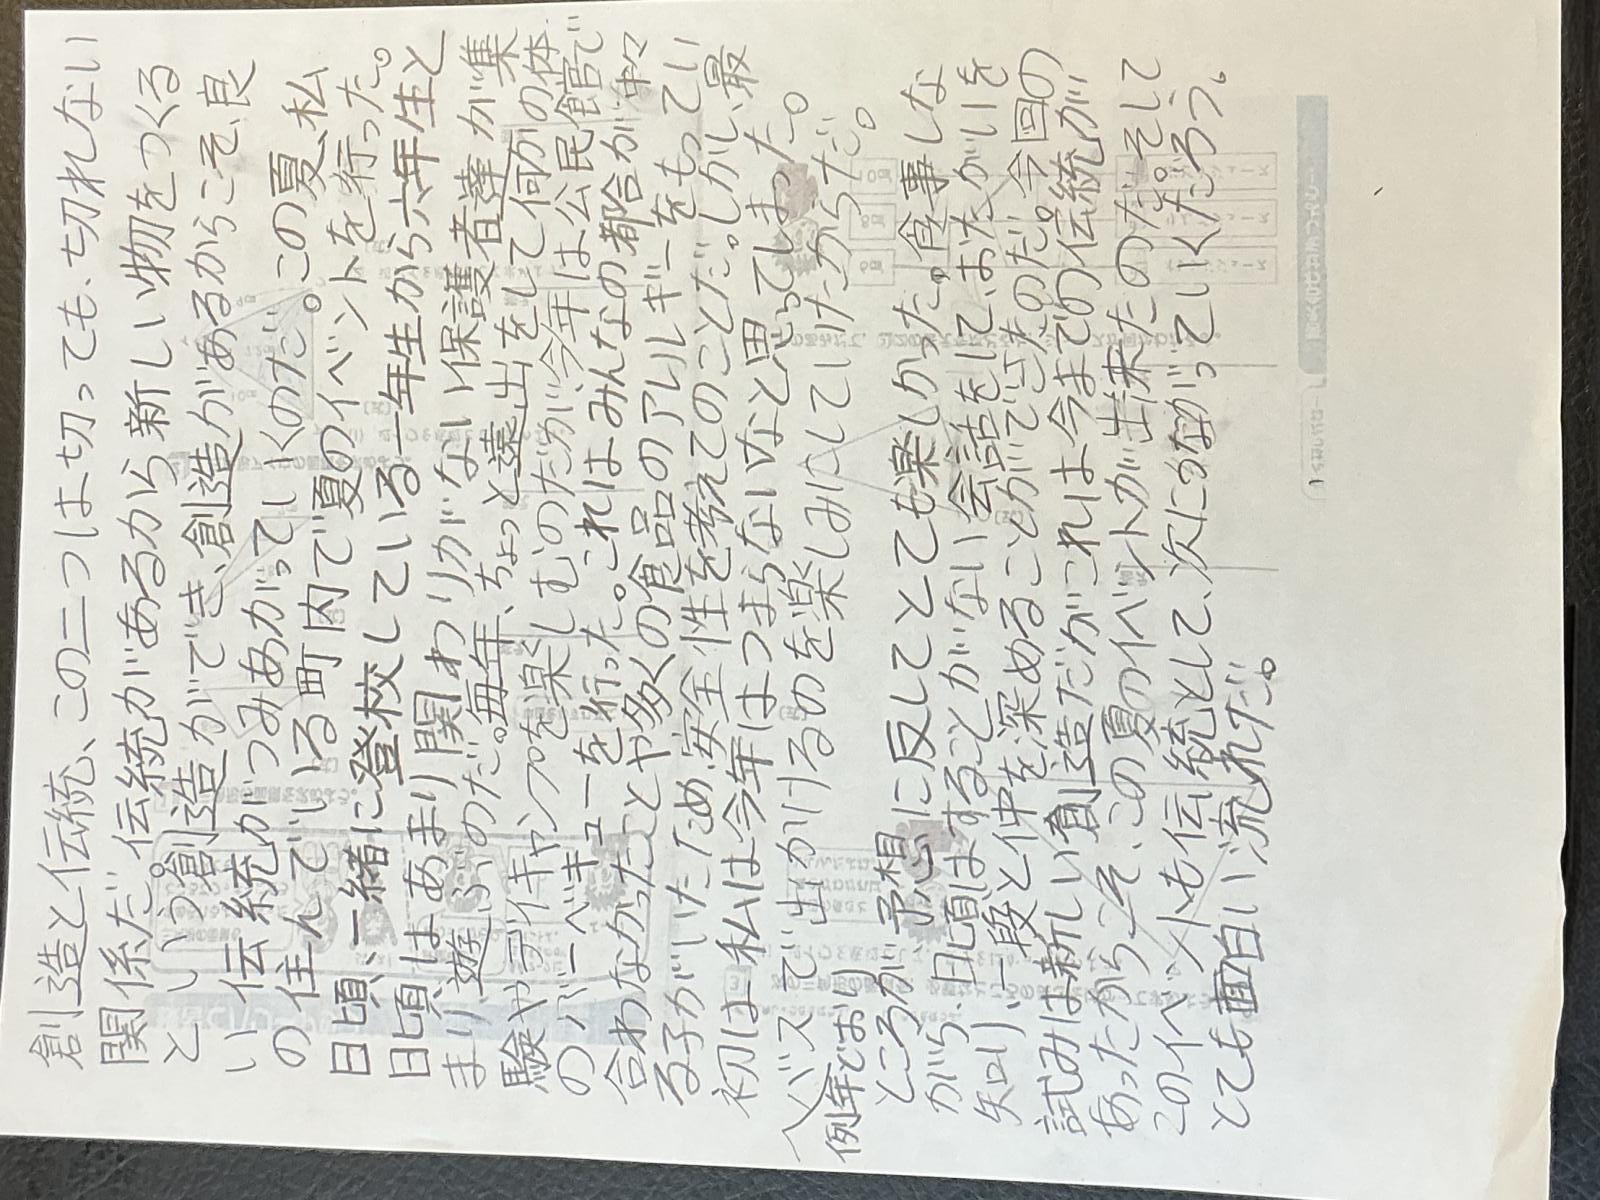 創造と伝統、この二つは切っても、切れない
関係だ。伝統があるから新しい物をつくる
という創造ができ、創造があるからこそ、良
い伝統がつみあがっていくのだ。この夏、私
の住んでいる町内で夏のイベントを行った。
日頃、一緒に登校している一年生から六年生と
日頃はあまり関わりがない保護者達が集
まり、遊ぶのだ。毎年、ちょっと遠出をして何かの体
験やデイキャンプを楽しむのだが今年は公民館で
のバーベキューを行った。これはみんなの都合が中々
合わなかったことや多くの食品のアレルギーをもってい
る子がいたため、安全性を考えてのことだ。しかし、最
初は私は今年はつまらないなと思ってしまった。
バスで出かけるのを楽しみにしていたからだ。
例年では
ところが予想に反してとても楽しかった。食事しな
がら、日頃はすることがない会話をして、おたがいを
知り、一段と仲を深めることができたのだ。今回の
試みは新しい創造だがこれは今までの伝統が
あったからこそ、この夏のイベントが出来たのだ。そして
このイベントも伝統として、次につながっていくだろう。
とても面白い流れだ。